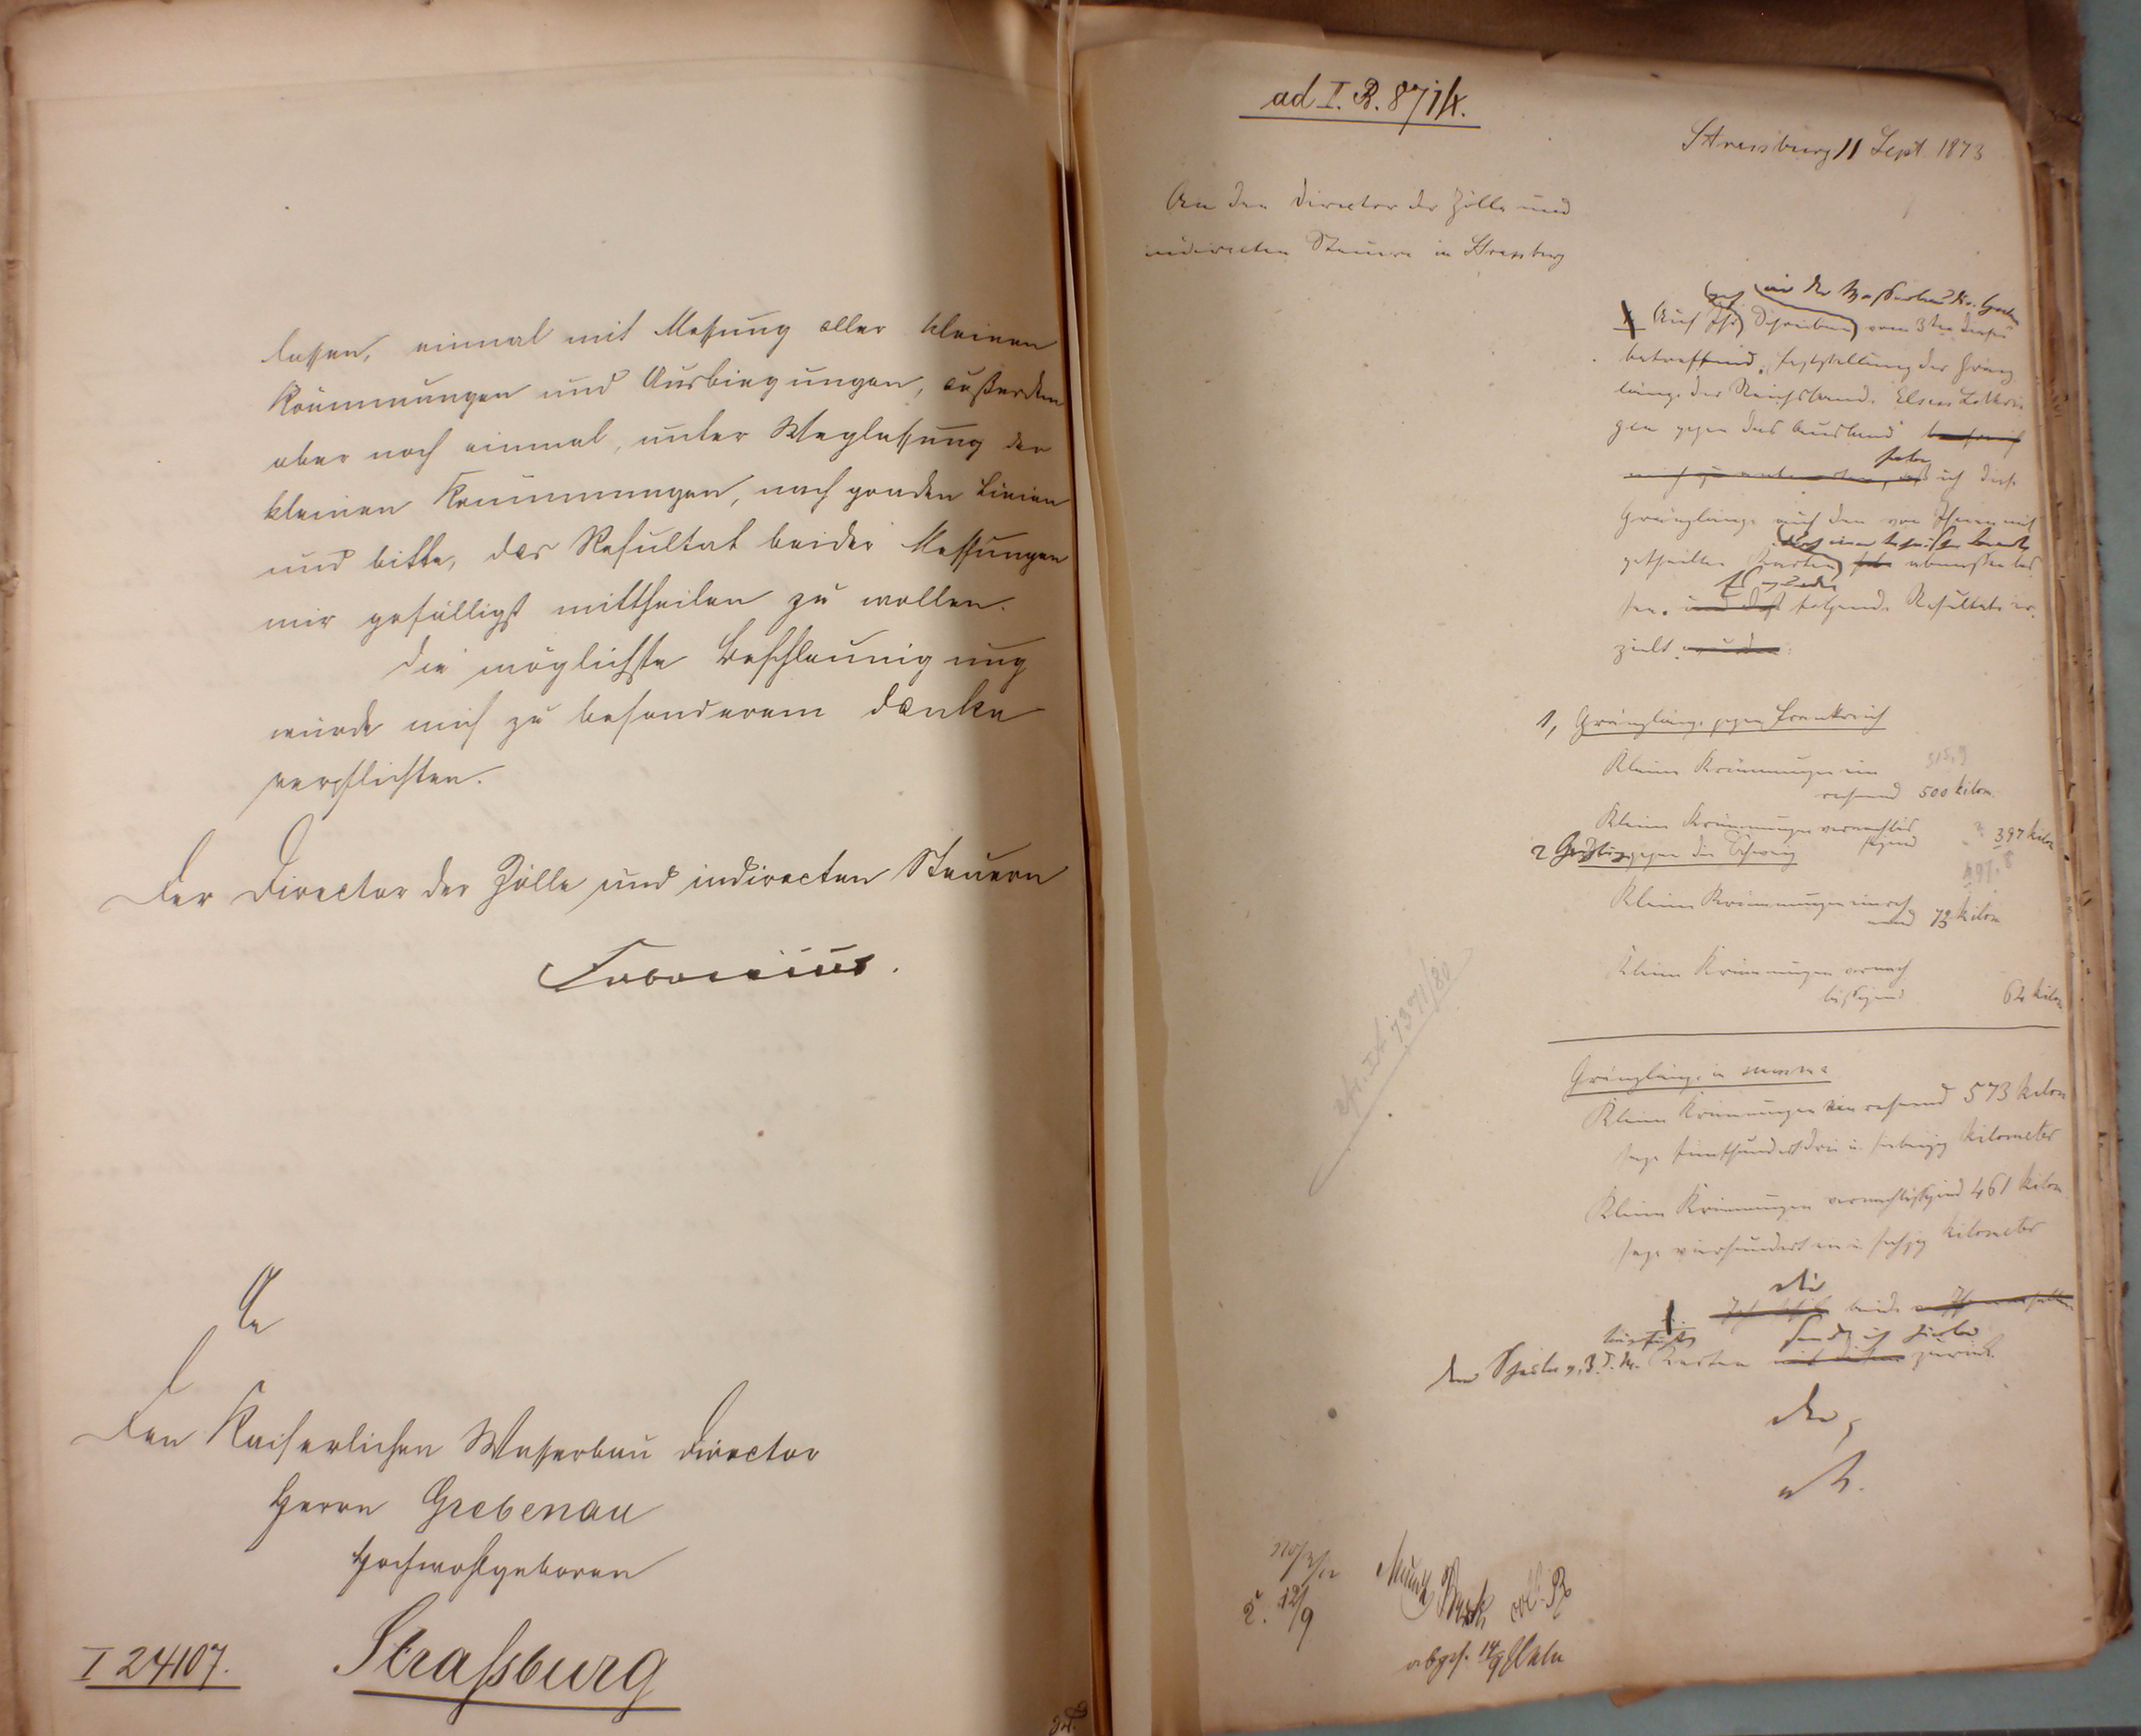 lassen, einmal mit Messung aller kleinen
Krümmungen und Ausbiegungen, außerdem
aber noch einmal, unter Weglassung der
kleinen Krümmungen, nach graden Linien
und bitte, das Resultat beider Messungen
mir gefälligst mittheilen zu wollen.
Die möglichste Beschleunigung
würde mich zu besonderem Danke
verpflichten.
Der Director der Zölle und indirecten Steuern
Fabricius.
An
Den Kaiserlichen Wasserbau Director
Herrn Grebenau
Hochwohlgeboren
I 24107. Straßburg
ad I. B. 871/4.
Strassburg 11 Sept. 1873
An den Director der Zölle und
indirecten Steuern in Strassburg
Auf Ihr Schreiben vom 3ten dieses
betreffend, Feststellung der Gränz
länge des Reichslands Elsass Lothrin
gen gegen das Ausland
habe
ich diese
Gränzlänge auf den von Ihnen mit
getheilten Karten abmessen las
sen. und folgende Resultate er
zielt wurden:
1, Gränzlänge gegen Frankreich
315,9
Kleine Krümmungen ein
rechnend 500 kilom.
Kleine Krümmungen vernachläs
sigend 397 kilom
2 Gränzlänge gegen die Schweiz
Kleine Krümmungen einrech
nend 73 kilom
Kleine Krümmungen vernach
lässigend 64 kilom
cfr. I 7391/80
Gränzlänge in summa
Kleine Krümmungen einrechnend 573 kilom
sage fünfhundert drei u. siebenzig kilometer
Kleine Krümmungen vernachlässigend 461 kilom
sage vierhundert ein u. sechzig kilometer
Die
beide
sende ich hierbei
Karten zurück.
Der
12/9
abges. 14/9